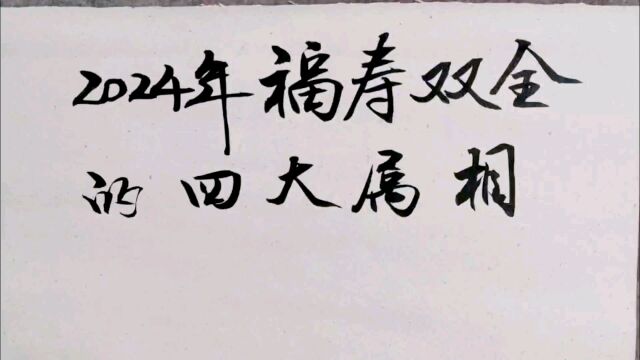 2024年福寿双全
的四大属相